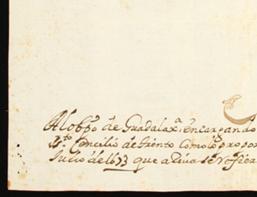 Al obpo de Guadalaxa encargando
sto Concilio de trento como lo propor
Julio de 1673 que